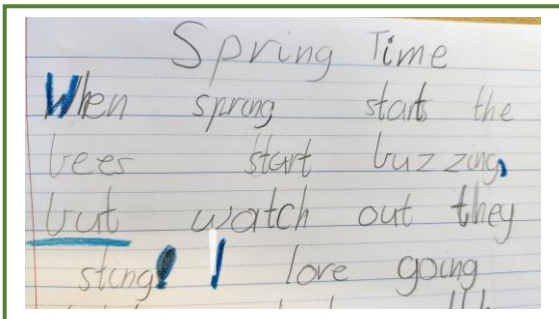 Spring Time
When spring starts the
bees start buzzing,
but watch out they
sting! I love going